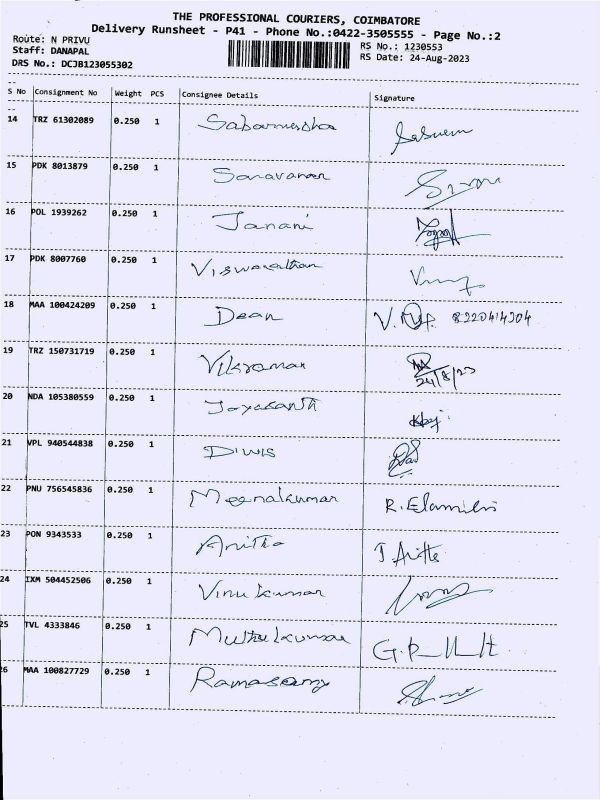 THE PROFESSIONAL COURIERS, COIMBATORE
Delivery Runsheet - P41 - Phone No.:0422-3505555 - Page No.:2
Route: N PRIVU
RS No.: 1230553
Staff: DANAPAL
RS Date: 24-Aug-2023
DRS No.: DCJB123055302
S No Consignment No Weight PCS Consignee Details Signature
14 TRZ 61302089 0.250 1
15 PDK 8013879 0.250 1 Saravanan
16 POL 1939262 0.250 1 Janani
17 PDK 8007760 0.250 1
18 MAA 100424209 0.250 1 Dean 8220414304
19 TRZ 150731719 0.250 1 Vikraman 24/8/23
20 NDA 105380559 0.250 1 Jayakanth
21 VPL 940544838 0.250 1
22 PNU 756545836 0.250 1 Meenakumar
23 PON 9343533 0.250 1 Anitha
24 IXM 504452506 0.250 1 Vinu kumar
25 TVL 4333846 0.250 1 Muthukumar
26 MAA 100827729 0.250 1 Ramasamy